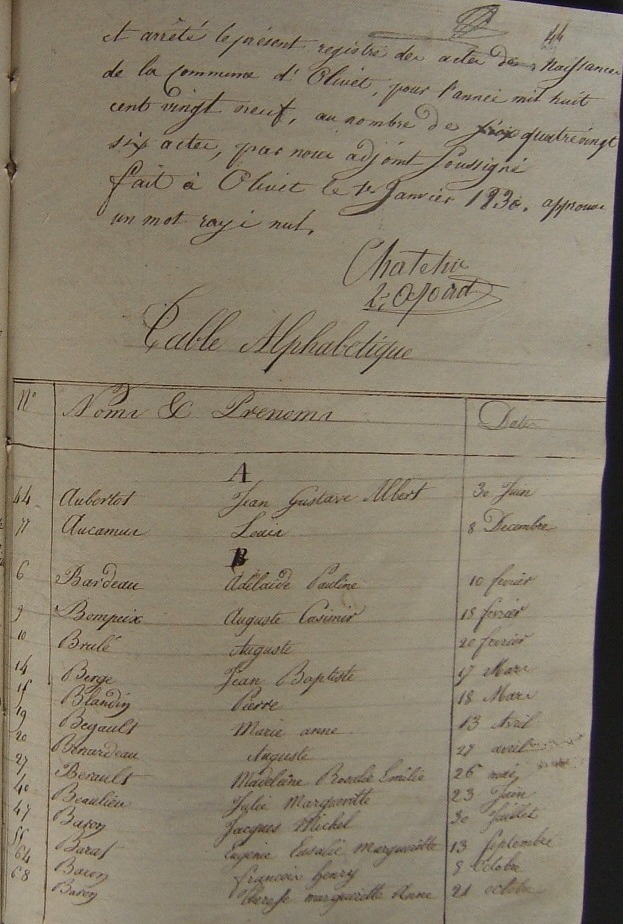 44
et arrêté le présent registre des actes de Naissances
de la Commune d'Olivet, pour l'année mil huit
cent vingt neuf, au nombre de quatrevingt
six actes, par nous adjoint soussigné
fait à Olivet le 1er Janvier 1830. approuvé
un mot rayé nul.
2e adjoint
Table Alphabétique
No Noms & Prenoms Dates
A
44 Aubertot Jean Gustave Albert 30 Juin
77 Aucamus Louis 8 Decembre
B
6 Bardeau Adélaïde Pauline 10 fevrier
9 Bompeix Auguste Casimir 18 fevrier
10 Brulé Auguste 20 fevrier
14 Berge Jean Baptiste 17 Mars
15 Blandin Pierre 18 Mars
19 Begault Marie anne 13 Avril
20 Benardeau Auguste 27 avril
27 Berault Madeleine Rosalie Emilie 26 mai
Beaulieu Julie Margueritte 23 Juin
47 Baron Jacques Michel 30 Juillet
55 Barat Eugenie Eusalie Margueritte 13 Septembre
64 Baron francois henry 5 Octobre
68 Baron therese margueritte Anne 21 octobre